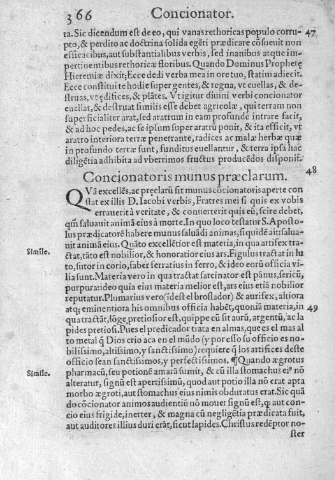 366 Concionator.
ta. Sic dicendum est de eo, qui vanas rethoricas populo corru- 47
pto, & perdito ac doctrina solida egēti prædicare cōsueuit non
efficacibus, aut substantialibus verbis, sed inanibus atque im-
pertinentibus rhetoricæ floribus. Quando Dominus Prophetę
Hieremiæ dixit, Ecce dedi verba mea in ore tuo, statim adiecit.
Ecce constitui te hodie super gentes, & ragna, vt euellas, & de-
struas, vt ędifices, & plātes. Vt igitur diuini verbi concionator
euellat, & destruat similis esse debet agricolæ, qui terram non
superficialiter arat, sed aratrum in eam profunde intrare facit,
& ad hoc pedes, ac se ipsum super aratrū ponit, & ita efficit, vt
aratro interiora terræ penetrante, radices ac malæ herbæ quæ
in profundo terræ sunt, funditus euellantur, & terra ipsa hac
diligētia adhibita ad vberrimos fructus producēdos disponit.
Concionatoris munus præclarum. 48
QVā excellēs, ac pręclarū sit munus cōcionatoris aperte con
stat ex illis D. Iacobi verbis, Fratres mei si quis ex vobis
errauerit à veritate, & conuerterit quis eū, scire debet,
qm̄ saluauit animā eius à morte. In quo loco testatur S. Aposto-
lus prædicatorē habere munus saluādi animas, siquidē ait salua-
uit animā eius. Quāto excellētior est materia, in qua artifex tra-
Simile. ctat, tāto est nobilior, & honoratior eius ars. Figulus tractat in lu
to, sutor in corio, faber ferrarius in ferro, & ideo eorū officia vi-
lia sunt. Materia vero in qua tractat sateinator est pānus, sericū,
purpura ideo quia eius materia melior est, ars eius etiā nobilior
reputatur. Plumarius vero (id est el broslador) & aurifex, altiora
atq; eminentiora his omnibus officia habēt, quoniā materia, in 49
qua tractāt, lōge pretiosior est, quippe cū sit aurū, argentū, ac la
pides pretiosi. Pues el predicador trata en almas, que es el mas al
to metal q̄ Dios crio aca en el mūdo (y por esso su officio es no-
bilissimo, altissimo, y sanctissimo) requiere q̄ los artifices deste
officio sean sanctissimos, y perfectissimos. ¶ Quando ægrotus
Simile. pharmacū, seu potionē amarā sumit, & cū illa stomachus eius nō
alteratur, signū est apertissimū, quod aut potio illa nō erat apta
morbo ægroti, aut stomachus eius nimis obduratus erat. Sic quā
do cōcionator animos audientiū nō mouet signū est, q̄ aut con-
cio eius frigide, inerter, & magna cū negligētia prædicata fuit,
aut auditores illius duri erāt, sicut lapides. Christus redēptor no
ster